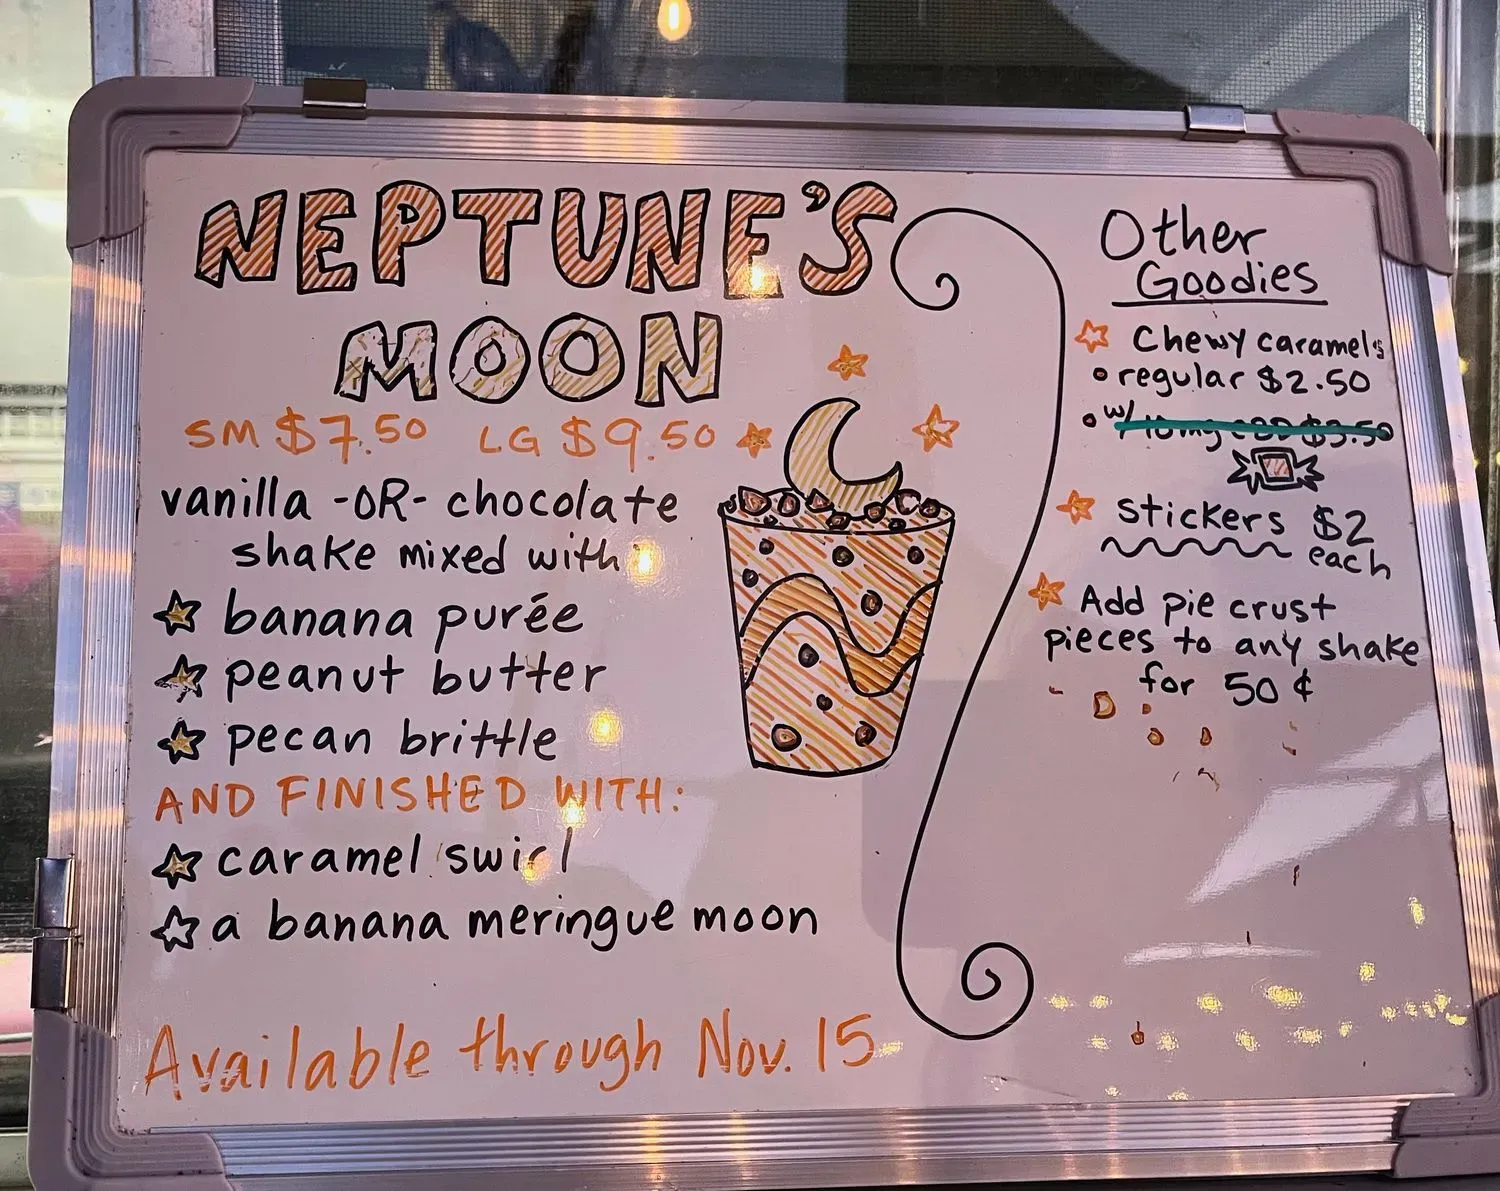 NEPTUNE'S
MOON
SM $7.50 LG $9.50
vanilla -OR- chocolate
shake mixed with
banana purée
peanut butter
pecan brittle
AND FINISHED WITH:
caramel swirl
a banana meringue moon
Available through Nov. 15
Other
Goodies
Chewy caramels
regular $2.50
w/ 10mg CBD $3.50
stickers $2
each
Add pie crust
pieces to any shake
for 50¢